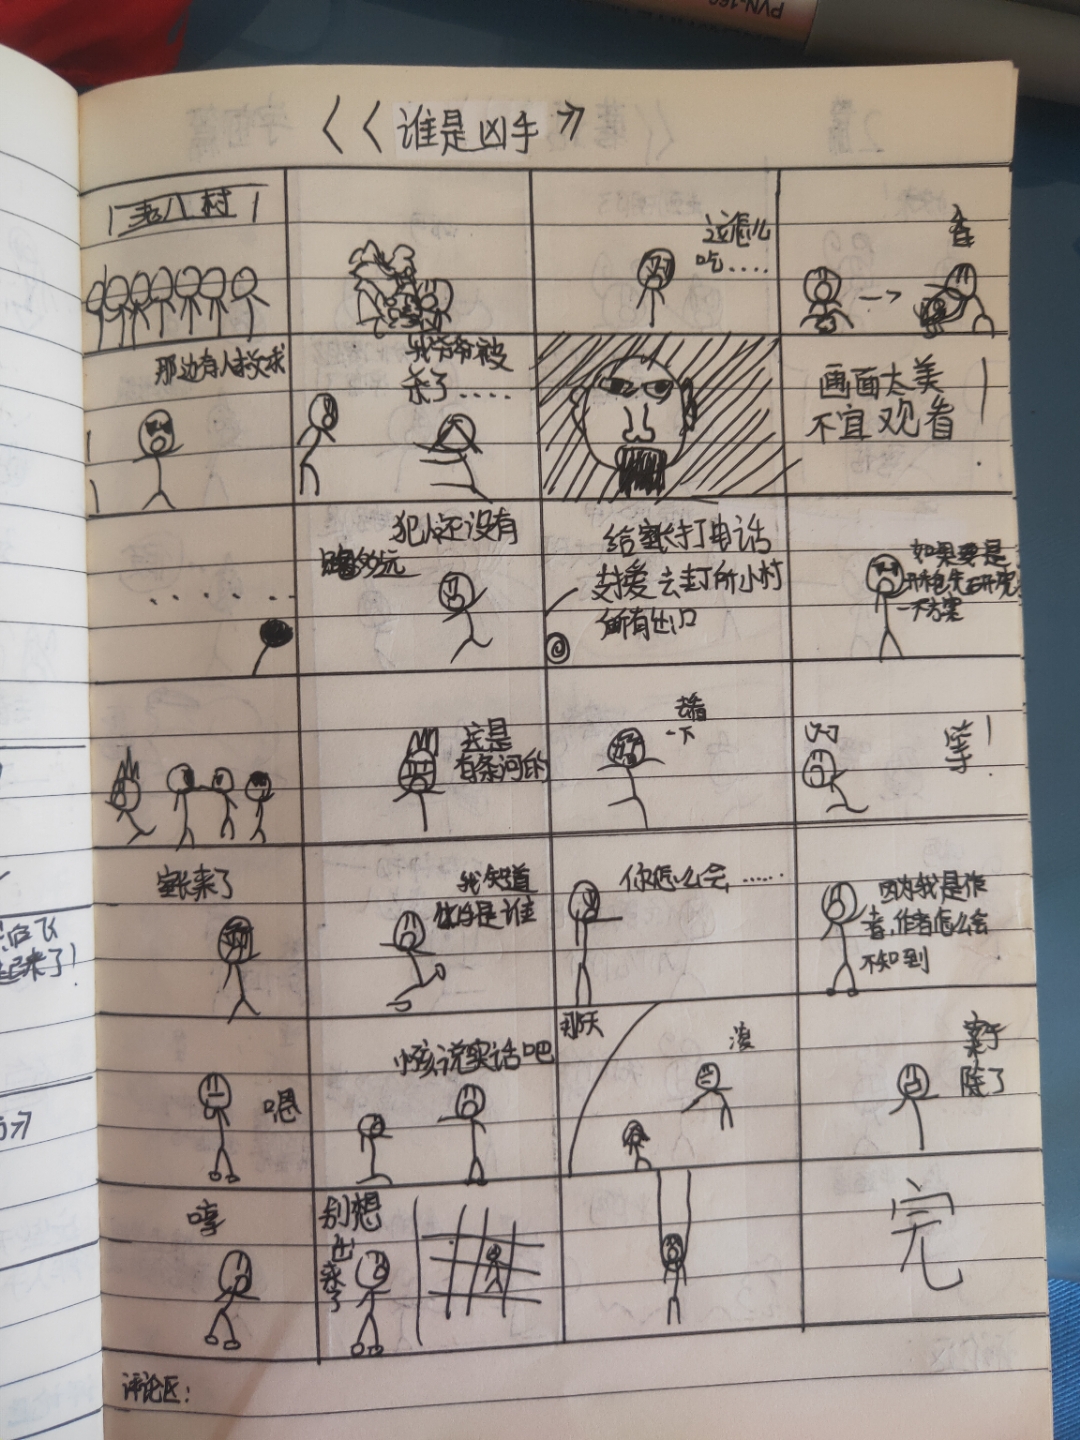 《《谁是凶手》
老八村
这怎么
吃....
那边有人救求
我爷爷被
杀了.....
画面太美
不宜观看
犯人还没有
跑多远
给室长打电话
支援去封所小村
所有出口
如果要是
一个方案
这是
有条河的
去看
一下
等!
室长来了
我知道
你怎么会......
因为我是作
者,作者怎么会
不知到
嗯
小孩说实话吧
那天
滚
案子
除了
哼
别想
出
来
了
完
评论区:
起来了!
PVN-160